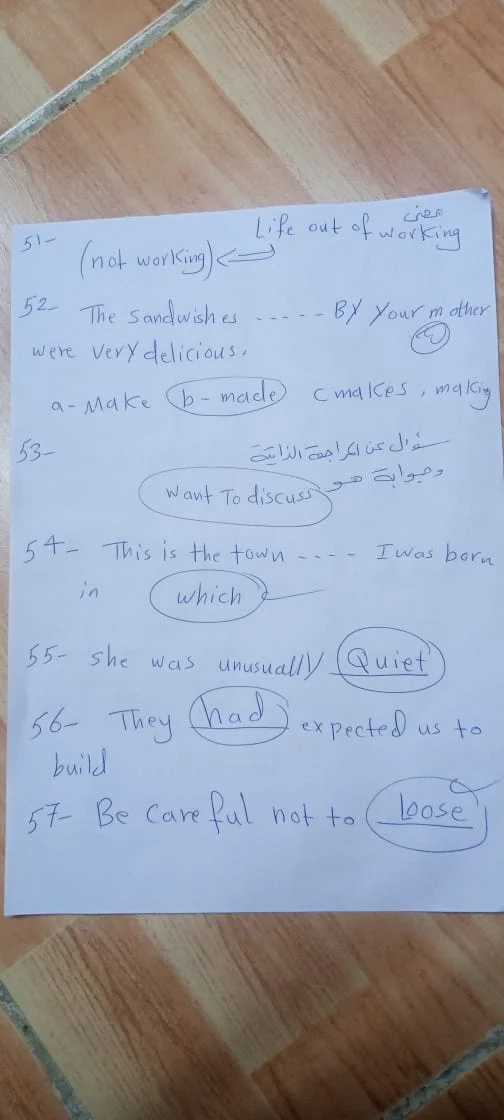 51- Life out of working معنى
(not working)
52- The sandwishes ----- By your mother
were very delicious.
a- Make b- made c makes, making
53- سؤال عن المراجعة الذاتية
وجوابة هو
want To discuss
54- This is the town ---- I was born
in which
55- she was unusually Quiet
56- They had expected us to
build
57- Be careful not to Loose